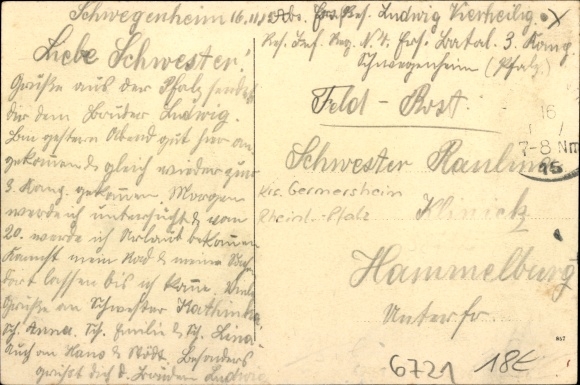 Schwegenheim 16.11.15
Liebe Schwester!
Grüße aus der Pfalz sendet
dir dein Bruder Ludwig.
Bin gestern Abend gut hier an
gekommen & gleich wieder zur
3. Komp. gekommen Morgen
werde ich untersucht & vom
20. werde ich Urlaub bekommen
Kannst mein Rad & meine Sach
dort lassen bis ich komme. Viele
Grüße an Schwester Kathinka
Sch. Anna. Sch. Emilie & Sch. Lina
Auch an Hans & Besonders
grüßt dich d. Bruder Ludwig
Abs. Ers. Res. Ludwig Vierheilig
Res. Inf. Reg. N. 4. Ers. Batal. 3. Komp.
Schwegenheim (Pfalz.)
Feld-Post.
16
7-8 Nm
15
Schwester Paulina
Krs. Germersheim
Rheinl.-Pfalz
Klinick
Hammelburg
Unterfr.
6721 18€